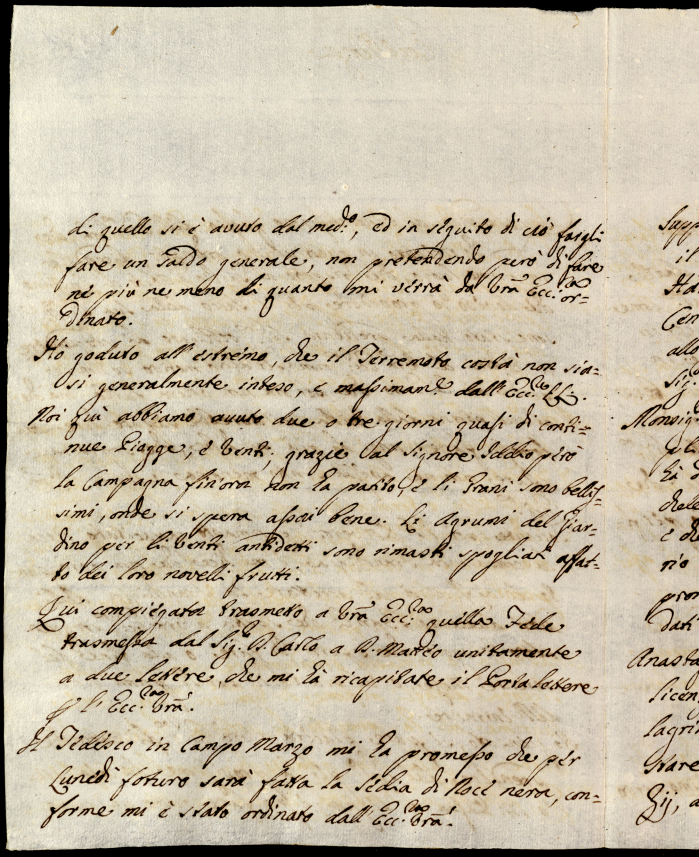 di quello si è avuto dal med:o, ed in seguito di ciò fargli
fare un Saldo generale, non pretendendo però di fare
nè più ne meno di quanto mi verrà da Vrã Ecc:za or=
dinato.
Hò goduto all'estremo, che il Terremoto costà non sia=
si generalmente inteso, e massimam:e dall'Ecc:ze LL:.
Noi quì abbiamo avuto due o tre giorni quasi di conti=
nue Piogge, e Venti; grazie al Signore Iddio però
la Campagna fin'ora non hà patito, e li Grani sono bellis=
simi, onde si spera assai bene. Li Agrumi del Giar=
dino per li Venti antidetti sono rimasti spogliati affat=
to dei loro novelli frutti.
Qui compiegata trasmetto a Vrã Ecc:za quella Fede
trasmessa dal Sig:re D. Carlo a D. Matteo unitamente
a due lettere, che mi hà ricapitate il Portalettere
p l'Ecc:za Vrã.
Il Tedesco in Campo Marzo mi hà promesso che per
Lunedì futuro sarà fatta la Sedia di Noce nera, con=
forme mi è stato ordinato dall'Ecc:za Vrã.
Supp
il
Cen
allo
Sig
Monsig
gli
hà
e
rio
pron
dati
Anasta
licen
lagri
stare